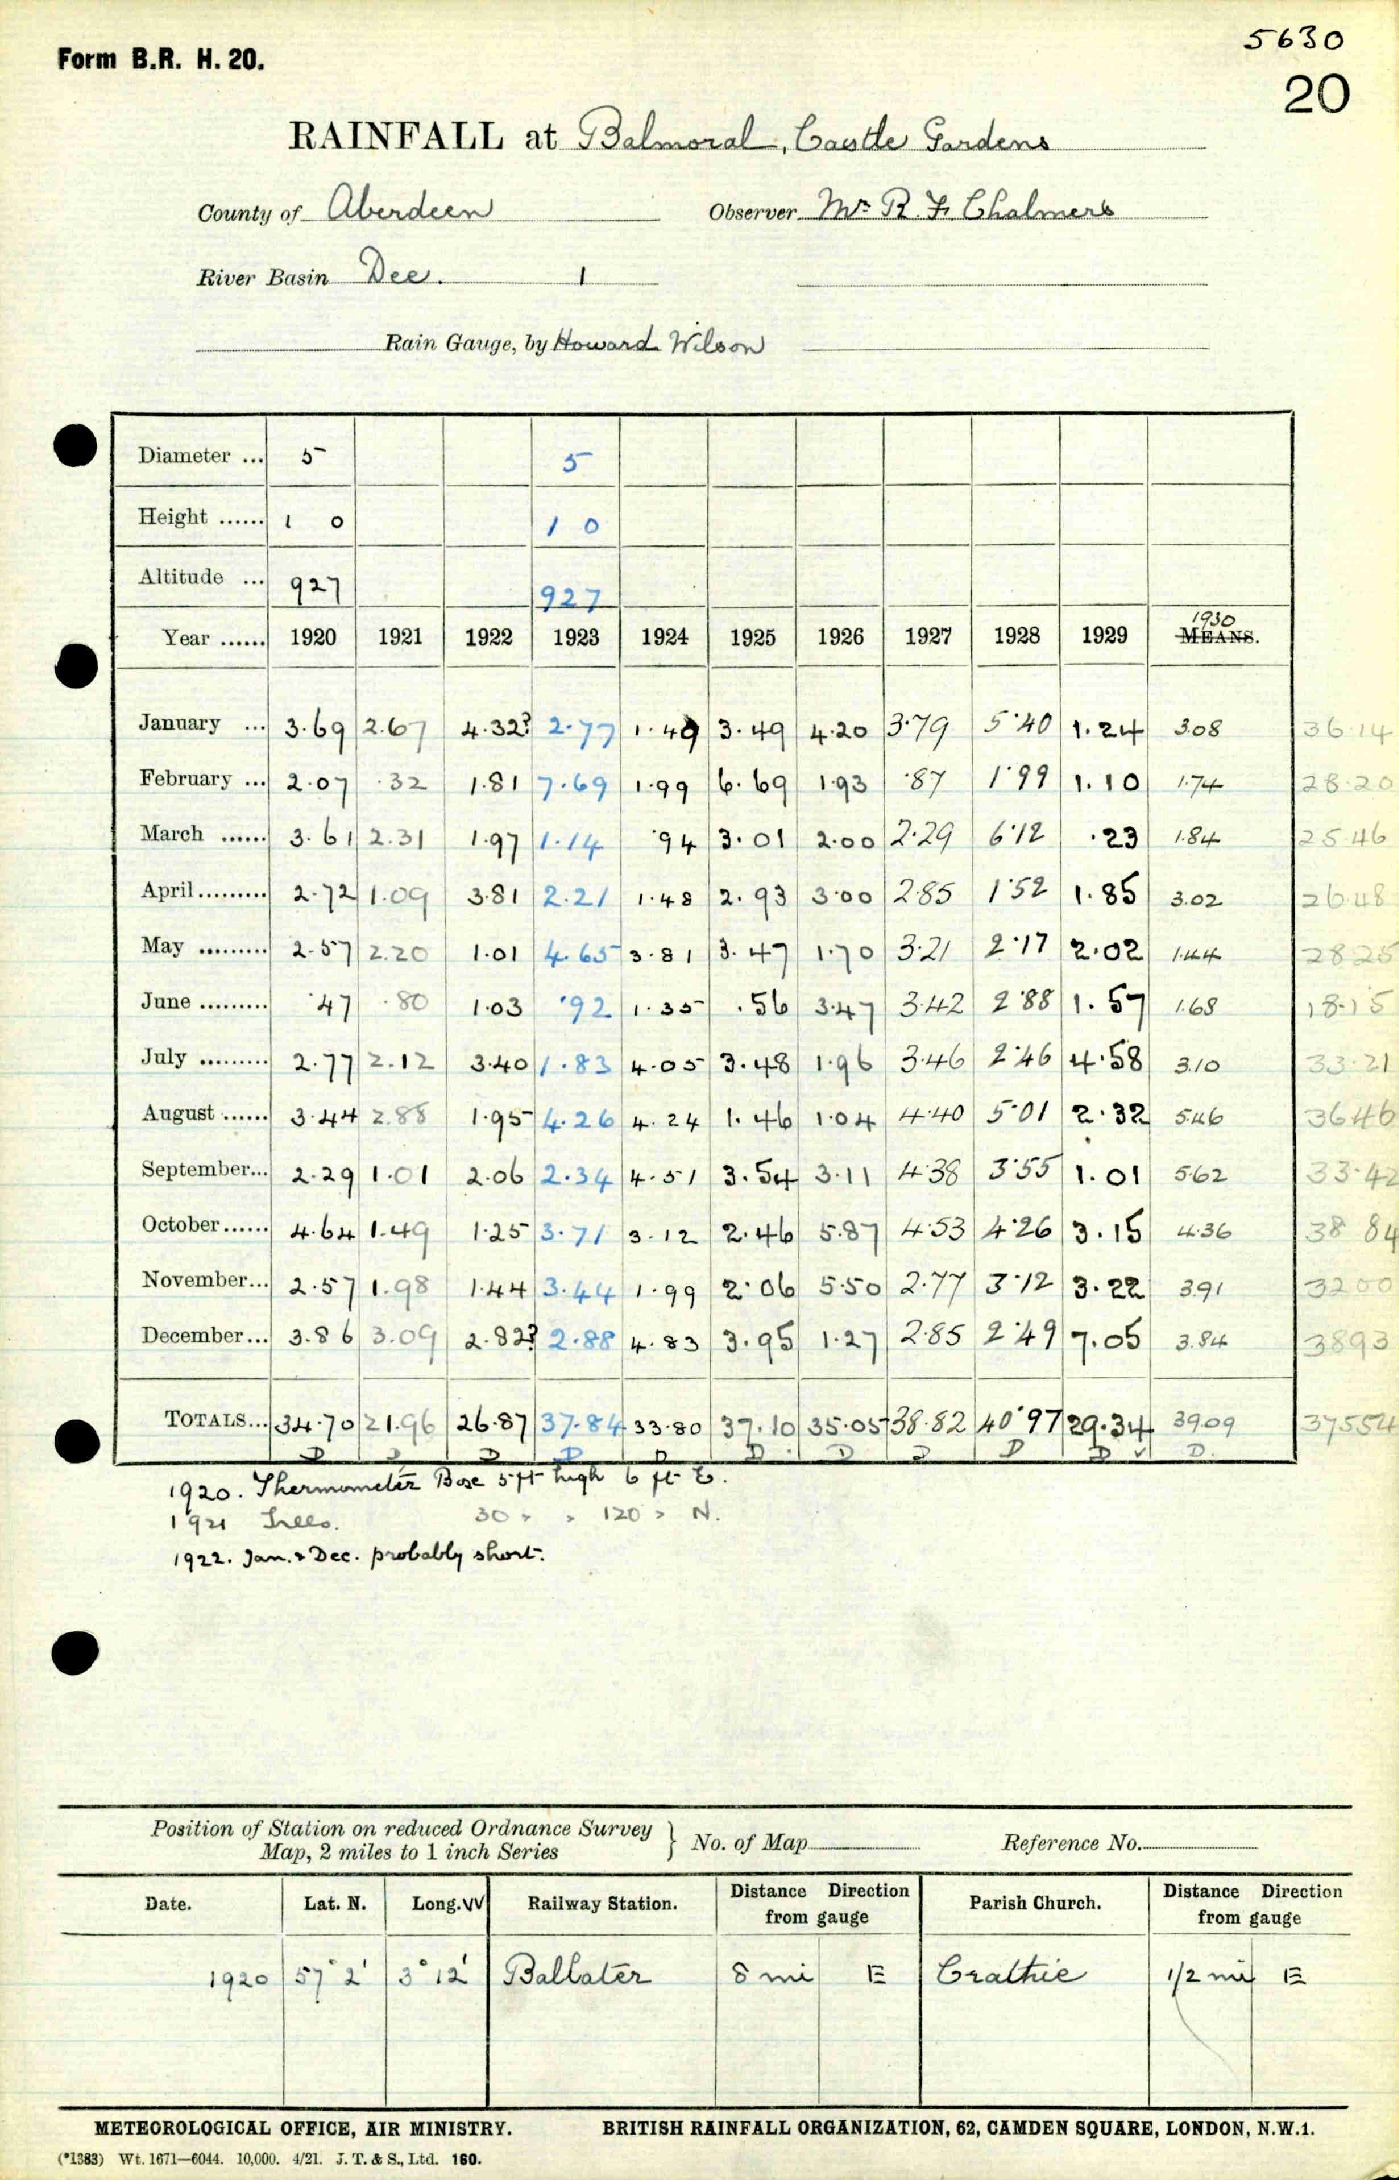 5630
Form B.R. H. 20.
20
RAINFALL at Balmoral, Castle Gardens
County of Aberdeen Observer Mr R. F. Chalmers
River Basin Dee. 1
Rain Gauge, by Howard Wilson
Diameter ... 5 5
Height ...... 1 0 1 0
Altitude ... 927 927
1930
Year ...... 1920 1921 1922 1923 1924 1925 1926 1927 1928 1929 MEANS.
January ... 3.69 2.67 4.32? 2.77 1.49 3.49 4.20 3.79 5.40 1.24 3.08 36.14
February ... 2.07 .32 1.81 7.69 1.99 6.69 1.93 .87 1.99 1.10 1.74 28.20
March ...... 3.61 2.31 1.97 1.14 .94 3.01 2.00 2.29 6.12 .23 1.84 25.46
April ......... 2.72 1.09 3.81 2.21 1.48 2.93 3.00 2.85 1.52 1.85 3.02 26.48
May ......... 2.57 2.20 1.01 4.65 3.81 3.47 1.70 3.21 2.17 2.02 1.44 28.25
June ......... .47 .80 1.03 .92 1.35 .56 3.47 3.42 2.88 1.57 1.68 18.15
July ......... 2.77 2.12 3.40 1.83 4.05 3.48 1.96 3.46 2.46 4.58 3.10 33.21
August ...... 3.44 2.88 1.95 4.26 4.24 1.46 1.04 4.40 5.01 2.32 5.46 36.46
September... 2.29 1.01 2.06 2.34 4.51 3.54 3.11 4.38 3.55 1.01 5.62 33.42
October ...... 4.64 1.49 1.25 3.71 3.12 2.46 5.87 4.53 4.26 3.15 4.36 38 84
November... 2.57 1.98 1.44 3.44 1.99 2.06 5.50 2.77 3.12 3.22 3.91 32 00
December... 3.86 3.09 2.82? 2.88 4.83 3.95 1.27 2.85 2.49 7.05 3.84 38 93
TOTALS... 34.70 21.96 26.87 37.84 33.80 37.10 35.05 38.82 40.97 29.34 39.09 37554
D D D D D D D D D D ✓ D.
1920. Thermometer Box 5 ft high 6 ft E.
1921 Trees. 30 " " 120 " N.
1922. Jan. & Dec. probably short.
Position of Station on reduced Ordnance Survey
Map, 2 miles to 1 inch Series } No. of Map Reference No.
Date. Lat. N. Long. W Railway Station. Distance Direction from gauge Parish Church. Distance Direction from gauge
1920 57° 2' 3° 12' Ballater 8 mi E Crathie 1/2 mi E
METEOROLOGICAL OFFICE, AIR MINISTRY. BRITISH RAINFALL ORGANIZATION, 62, CAMDEN SQUARE, LONDON, N.W.1.
(*1383) Wt. 1671—6044. 10,000. 4/21. J. T. & S., Ltd. 160.